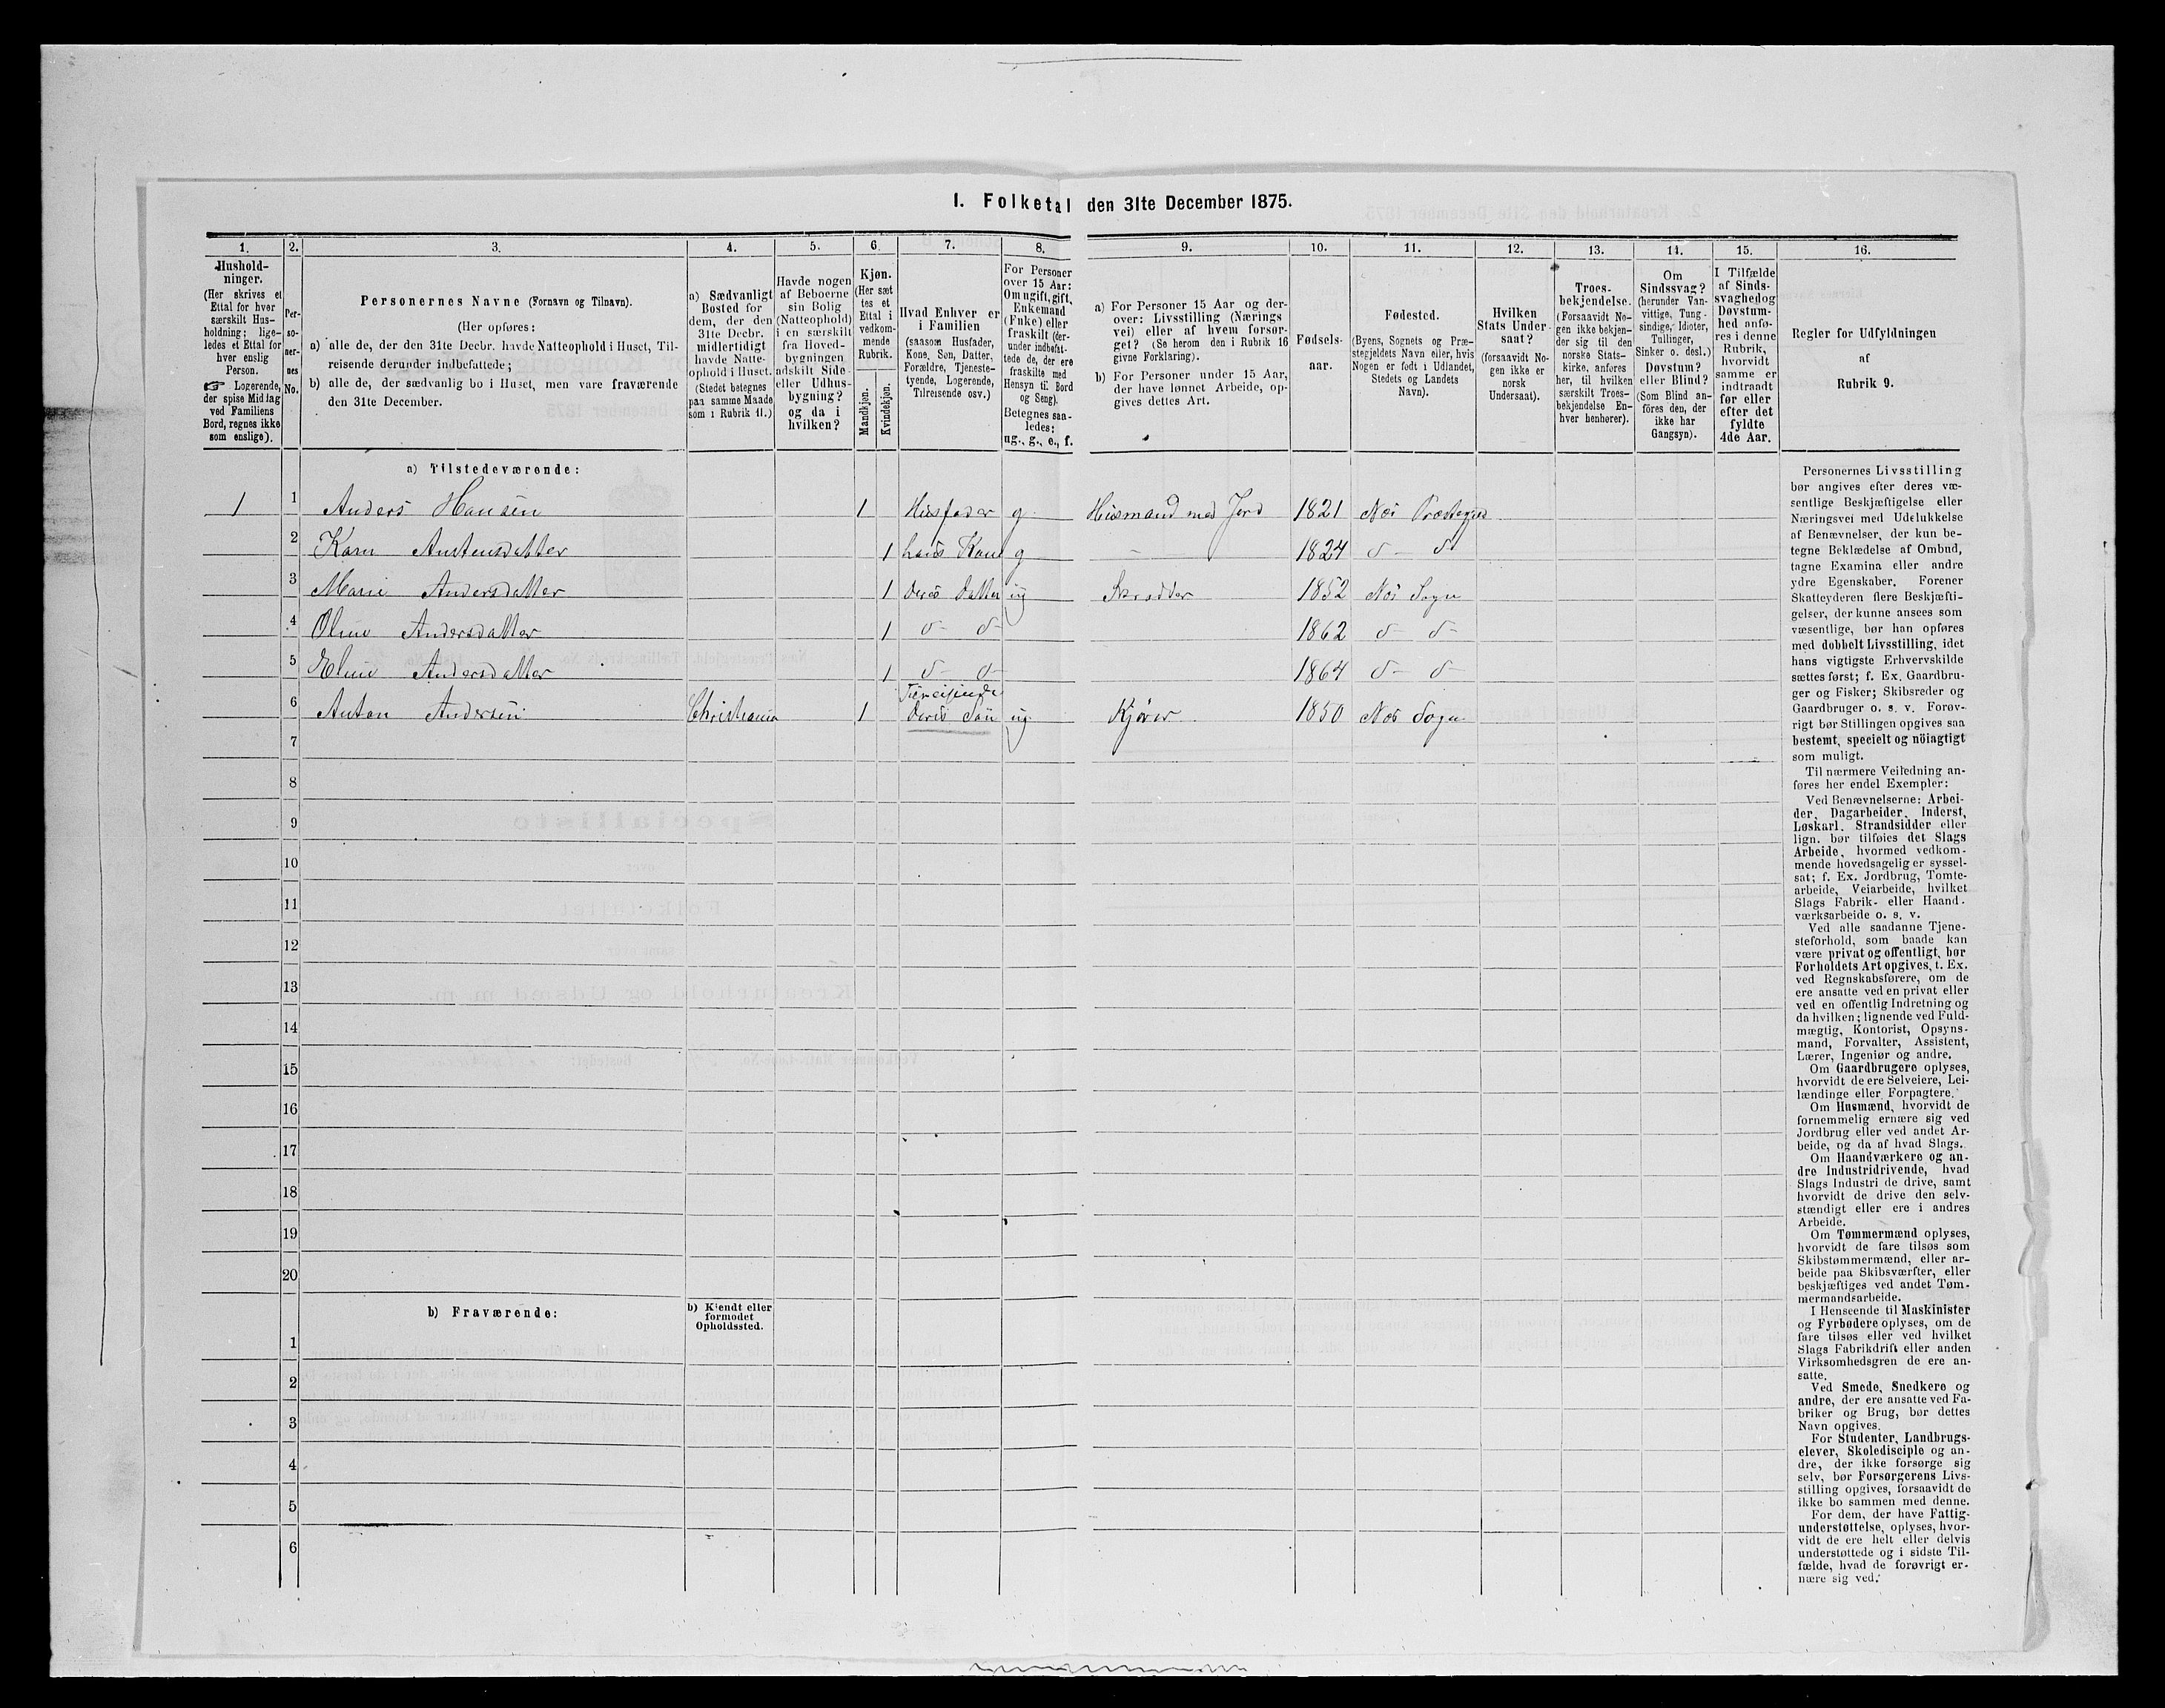 I. Folketal den 31te December 1875.
1.
Hushold-
ninger.
(Her skrives et
Ettal for hver
særskilt Hus-
holdning; lige-
ledes et Ettal for
hver enslig
Person.
☞ Logerende,
der spise Middag
ved Familiens
Bord, regnes ikke
som enslige).
2.
Per-
so-
ner-
nes
No.
3.
Personernes Navne (Fornavn og Tilnavn).
(Her opføres:
a) alle de, der den 31te Decbr. havde Natteophold i Huset, Til-
reisende derunder indbefattede;
b) alle de, der sædvanlig bo i Huset, men vare fraværende
den 31te December.
4.
a) Sædvanligt
Bosted for
dem, der den
31te Decbr.
midlertidigt
havde Natte-
ophold i Huset.
(Stedet betegnes
paa samme Maade
som i Rubrik 11.)
5.
Havde nogen
af Beboerne
sin Bolig
(Natteophold)
i en særskilt
fra Hoved-
bygningen
adskilt Side-
eller Udhus-
bygning?
og da i
hvilken?
6.
Kjøn.
(Her sæt
tes et
Ettal i
vedkom-
mende
Rubrik.
Mandkjøn.
Kvindekjøn.
7.
Hvad Enhver er
i Familien
(saasom Husfader,
Kone, Søn, Datter,
Forældre, Tjeneste-
tyende, Logerende,
Tilreisende osv.)
8.
For Personer
over 15 Aar:
Om ugift, gift,
Enkemand
(Enke) eller
fraskilt (der-
under indbefat-
tede de, der ere
fraskilte med
Hensyn til Bord
og Seng).
Betegnes saa-
ledes:
ug., g., e., f.
9.
a) For Personer 15 Aar og der-
over: Livsstilling (Nærings
vei) eller af hvem forsør-
get? (Se herom den i Rubrik 16
givne Forklaring).
b) For Personer under 15 Aar,
der have lønnet Arbeide, op-
gives dettes Art.
10.
Fødsels-
aar.
11.
Fødested.
(Byens, Sognets og Præ-
stegjeldets Navn eller, hvis
Nogen er født i Udlandet,
Stedets og Landets
Navn).
12.
Hvilken
Stats Under-
saat?
(forsaavidt No-
gen ikke er
norsk
Undersaat).
13.
Troes-
bekjendelse.
(Forsaavidt No-
gen ikke bekjen-
der sig til den
norske Stats-
kirke, anføres
her, til hvilken
særskilt Troes-
bekjendelse En-
hver henhører).
14.
Om
Sindssvag?
(herunder Van-
vittige, Tung-
sindige, Idioter,
Tullinger,
Sinker o. desl.)
Døvstum?
eller Blind?
(Som Blind an-
føres den, der
ikke har
Gangsyn).
15.
I Tilfælde
af Sinds-
svaghed og
Døvstum-
hed anfø-
res i denne
Rubrik,
hvorvidt
samme er
indtraadt
før eller
efter det
fyldte
4de Aar.
16.
Regler for Udfyldningen
af
Rubrik 9.
a) Tilstedeværende:
1 1 Anders Hansen 1 Husfader g Husmand med Jord 1821 Nes Præstegjeld
2 Karn 1 hans Kone g - 1824 d- d-
3 Marie Andersdatter 1 deres Datter ug 1852 Nes Sogn
4 Oline Andersdatter 1 d- d- 1862 d- d-
5 Eline Andersdatter 1 d- d- 1864 d- d-
6 Anton Andersen Christiania 1 Tilreisende deres Søn ug 1850 Nes Sogn
7
8
9
10
11
12
13
14
15
16
17
18
19
20
b) Fraværende:
b) Kjendt eller
formodet
Opholdssted.
1
2
3
4
5
6
Personernes Livsstilling
bør angives efter deres væ-
sentlige Beskjæftigelse eller
Næringsvei med Udelukkelse
af Benævnelser, der kun be-
tegne Beklædelse af Ombud,
tagne Examina eller andre
ydre Egenskaber. Forener
Skatteyderen flere Beskjæfti-
gelser, der kunne ansees som
væsentlige, bør han opføres
med dobbelt Livsstilling, idet
hans vigtigste Erhvervskilde
sættes først; f. Ex. Gaardbru-
ger og Fisker; Skibsreder og
Gaardbruger o. s. v. Forøv-
rigt bør Stillingen opgives saa
bestemt, specielt og nöiagtigt
som muligt.
Til nærmere Veiledning an-
føres her endel Exempler:
Ved Benævnelserne: Arbei-
der, Dagarbeider, Inderst,
Løskarl, Strandsidder eller
lign. bør tilføies det Slags
Arbeide, hvormed vedkom-
mende hovedsagelig er syssel-
sat; f. Ex. Jordbrug, Tomte-
arbeide, Veiarbeide, hvilket
Slags Fabrik- eller Haand-
værksarbeide o. s. v.
Ved alle saadanne Tjene-
steforhold, som baade kan
være privat og offentligt, bør
Forholdets Art opgives, t. Ex.
ved Regnskabsførere, om de
ere ansatte ved en privat eller
ved en offentlig Indretning og
da hvilken; lignende ved Fuld-
mægtig, Kontorist, Opsyns-
mand, Forvalter, Assistent,
Lærer, Ingeniør og andre.
Om Gaardbrugere oplyses,
hvorvidt de ere Selveiere, Lei-
lændinge eller Forpagtere.
Om Husmænd, hvorvidt de
fornemmelig ernære sig ved
Jordbrug eller ved andet Ar-
beide, og da af hvad Slags.
Om Haandværkere og an-
dre Industridrivende, hvad
Slags Industri de drive, samt
hvorvidt de drive den selv-
stændigt eller ere i andres
Arbeide.
Om Tømmermænd oplyses,
hvorvidt de fare tilsøs som
Skibstømmermænd, eller ar-
beide paa Skibsværfter, eller
beskjæftiges ved andet Tøm-
mermandsarbeide.
I Henseende til Maskinister
og Fyrbødere oplyses, om de
fare tilsøs eller ved hvilket
Slags Fabrikdrift eller anden
Virksomhedsgren de ere an-
satte.
Ved Smede, Snedkere og
andre, der ere ansatte ved Fa-
briker og Brug, bør dettes
Navn opgives.
For Studenter, Landbrugs-
elever, Skoledisciple og an-
dre, der ikke forsørge sig
selv, bør Forsørgerens Livs-
stilling opgives, forsaavidt de
ikke bo sammen med denne.
For dem, der have Fattig-
understøttelse, oplyses, hvor-
vidt de ere helt eller delvis
understøttede og i sidste Til-
fælde, hvad de forøvrigt er-
nære sig ved.